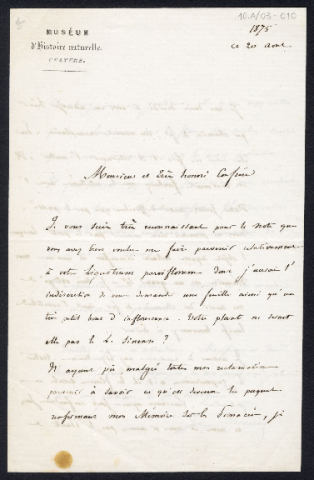 10.A/03-010
MUSÉUM
d'Histoire naturelle.
CULTURE.
1875
ce 20 aout
Monsieur et très honoré Confrère
Je vous suis très reconnaissant pour la note que
vous avez bien voulu me faire parvenir relativement
à votre Ligustrum parviflorum dont j'aurai l'
indiscretion de vous demander une feuille ainsi qu'un
très petit bout d'inflorescence. Votre plante ne serait
elle pas le L. Sinense ?
N'ayant pu malgré toutes mes reclamations
parvenir à savoir ce qu'est devenu le paquet
renfermant mon Memoire sur les je